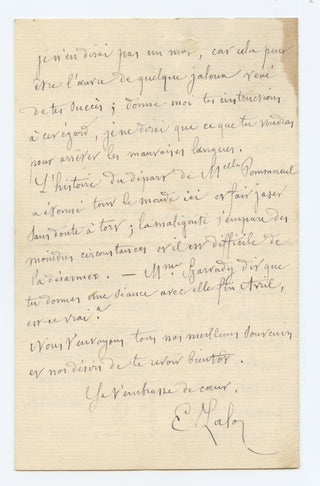 je n'en dirai pas un mot, car cela peut
être l'œuvre de quelque jaloux vexé
de tes succès ; donne moi tes instructions
à cet égard, je ne dirai que ce que tu voudras
pour arrêter les mauvaises langues.
L'histoire du départ de Melle
a étonné tout le monde ici et fait jaser
sans doute à tort ; la malignité s'empare des
moindres circonstances et il est difficile de
la désarmer. — Mme Szarvady dit que
tu donnes une séance avec elle fin Avril,
est-ce vrai ?
Nous t'envoyons tous nos meilleurs souvenirs
et nos désirs de te revoir bientôt.
Je t'embrasse de cœur.
E. Lalo